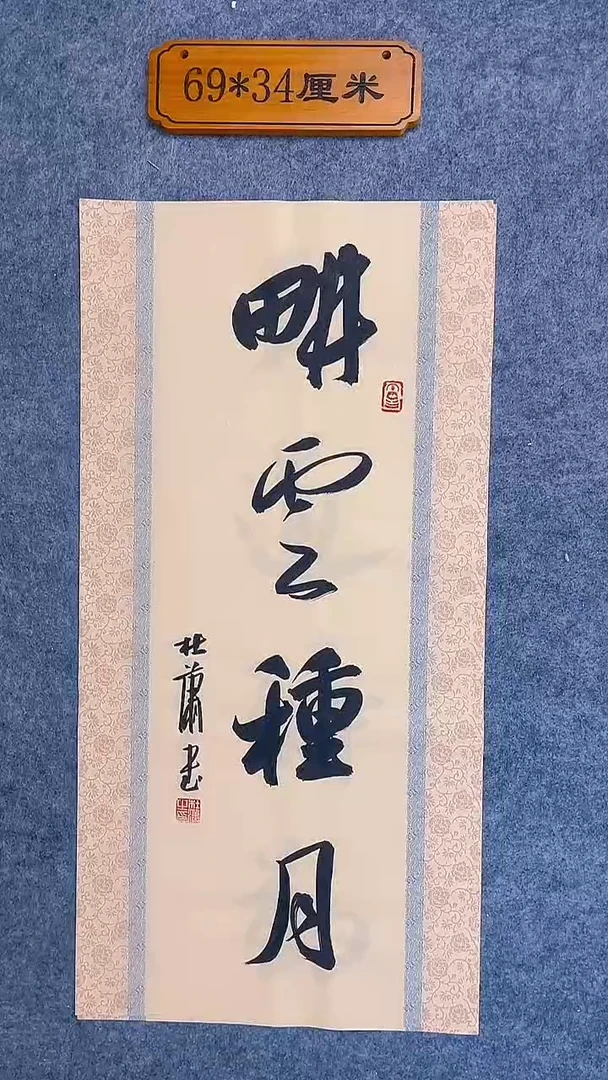 69*34厘米
畊雲種月
杜蕭書